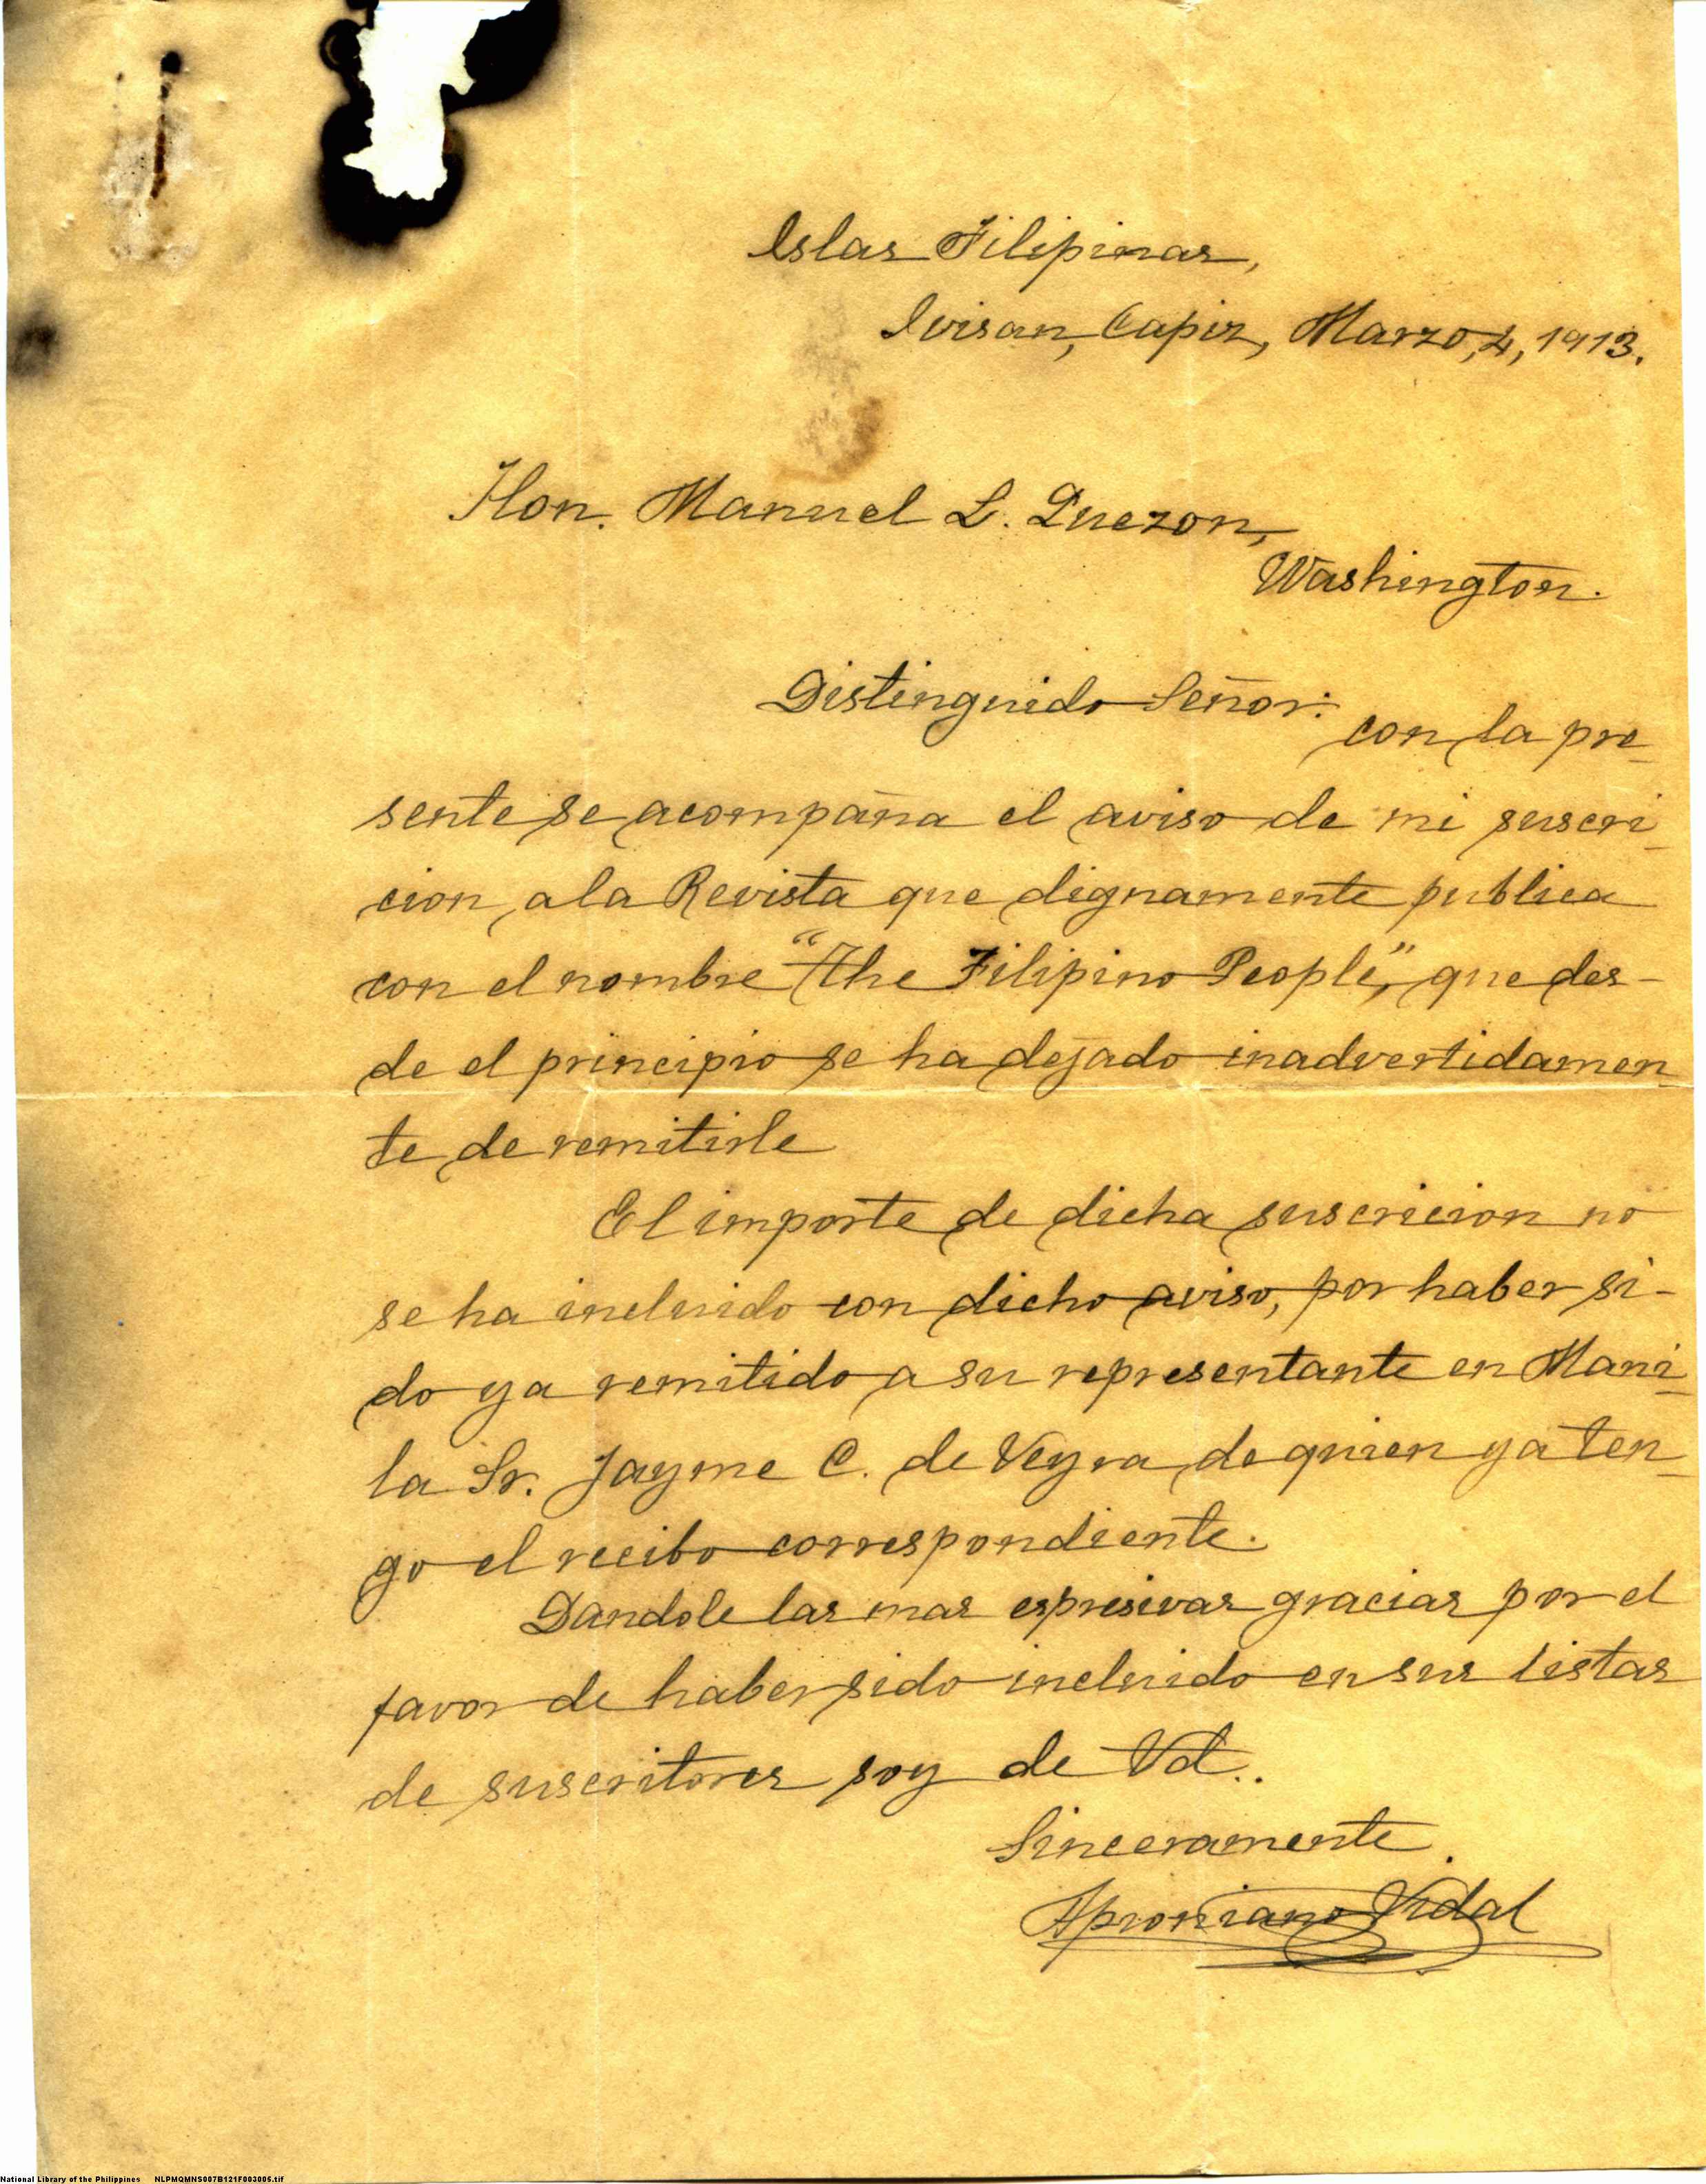 Islas Filipinas,
Ivisan, Capiz, Marzo, 4, 1913.
Hon. Manuel L. Quezon,
Washington.
Distinguido Señor:
con la pre-
sente se acompaña el aviso de mi suscri-
cion, a la Revista que dignamente publica
con el nombre "The Filipino People", que des-
de el principio se ha dejado inadvertidamen-
te de remitirle
El importe de dicha suscricion no
se ha incluido con dicho aviso, por haber si-
do ya remitido a su representante en Mani-
la Sr. Jayme C. de Veyra de quien ya ten-
go el recibo correspondiente.
Dandole las mas espresivas gracias por el
favor de haber sido incluido en sus listas
de suscritores soy de Vd..
Sinceramente.
Aproniano Vidal
National Library of the Philippines NLPMQMNS007B121F003006.tif